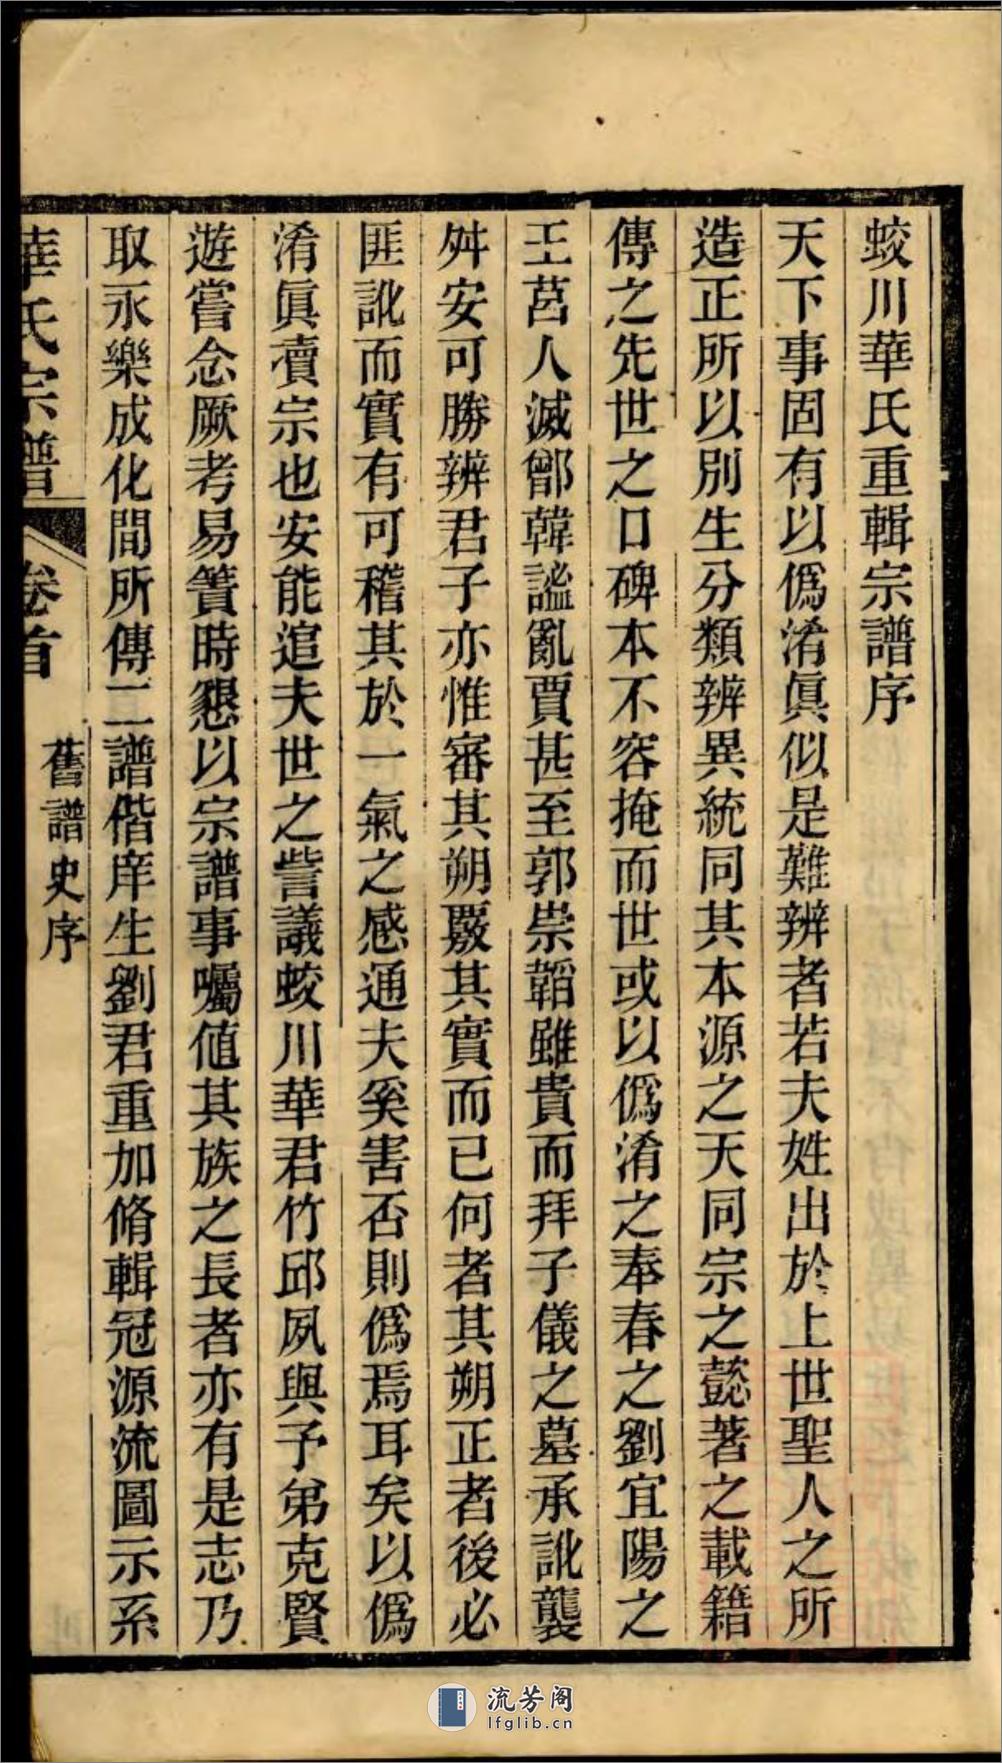 蛟川華氏重輯宗譜序
天下事固有以僞淆眞似是難辨者若夫姓出於上世聖人之所
造正所以別生分類辨異統同其本源之天同宗之懿著之載籍
傳之先世之口碑本不容掩而世或以僞淆之奉春之劉宜陽之
王莒人滅鄫韓謐亂賈甚至郭崇韜雖貴而拜子儀之墓承訛襲
舛安可勝辨君子亦惟審其朔覈其實而已何者其朔正者後必
匪訛而實有可稽其於一氣之感通夫奚害否則僞焉耳矣以僞
淆眞瀆宗也安能追夫世之訾議蛟川華君竹邱夙與予弟克賢
遊嘗念厥考易簀時懇以宗譜事囑値其族之長者亦有是志乃
取永樂成化間所傳二譜偕庠生劉君重加脩輯冠源流圖示系
華氏宗譜 卷首 舊譜史序
流芳阁
lfglib.cn